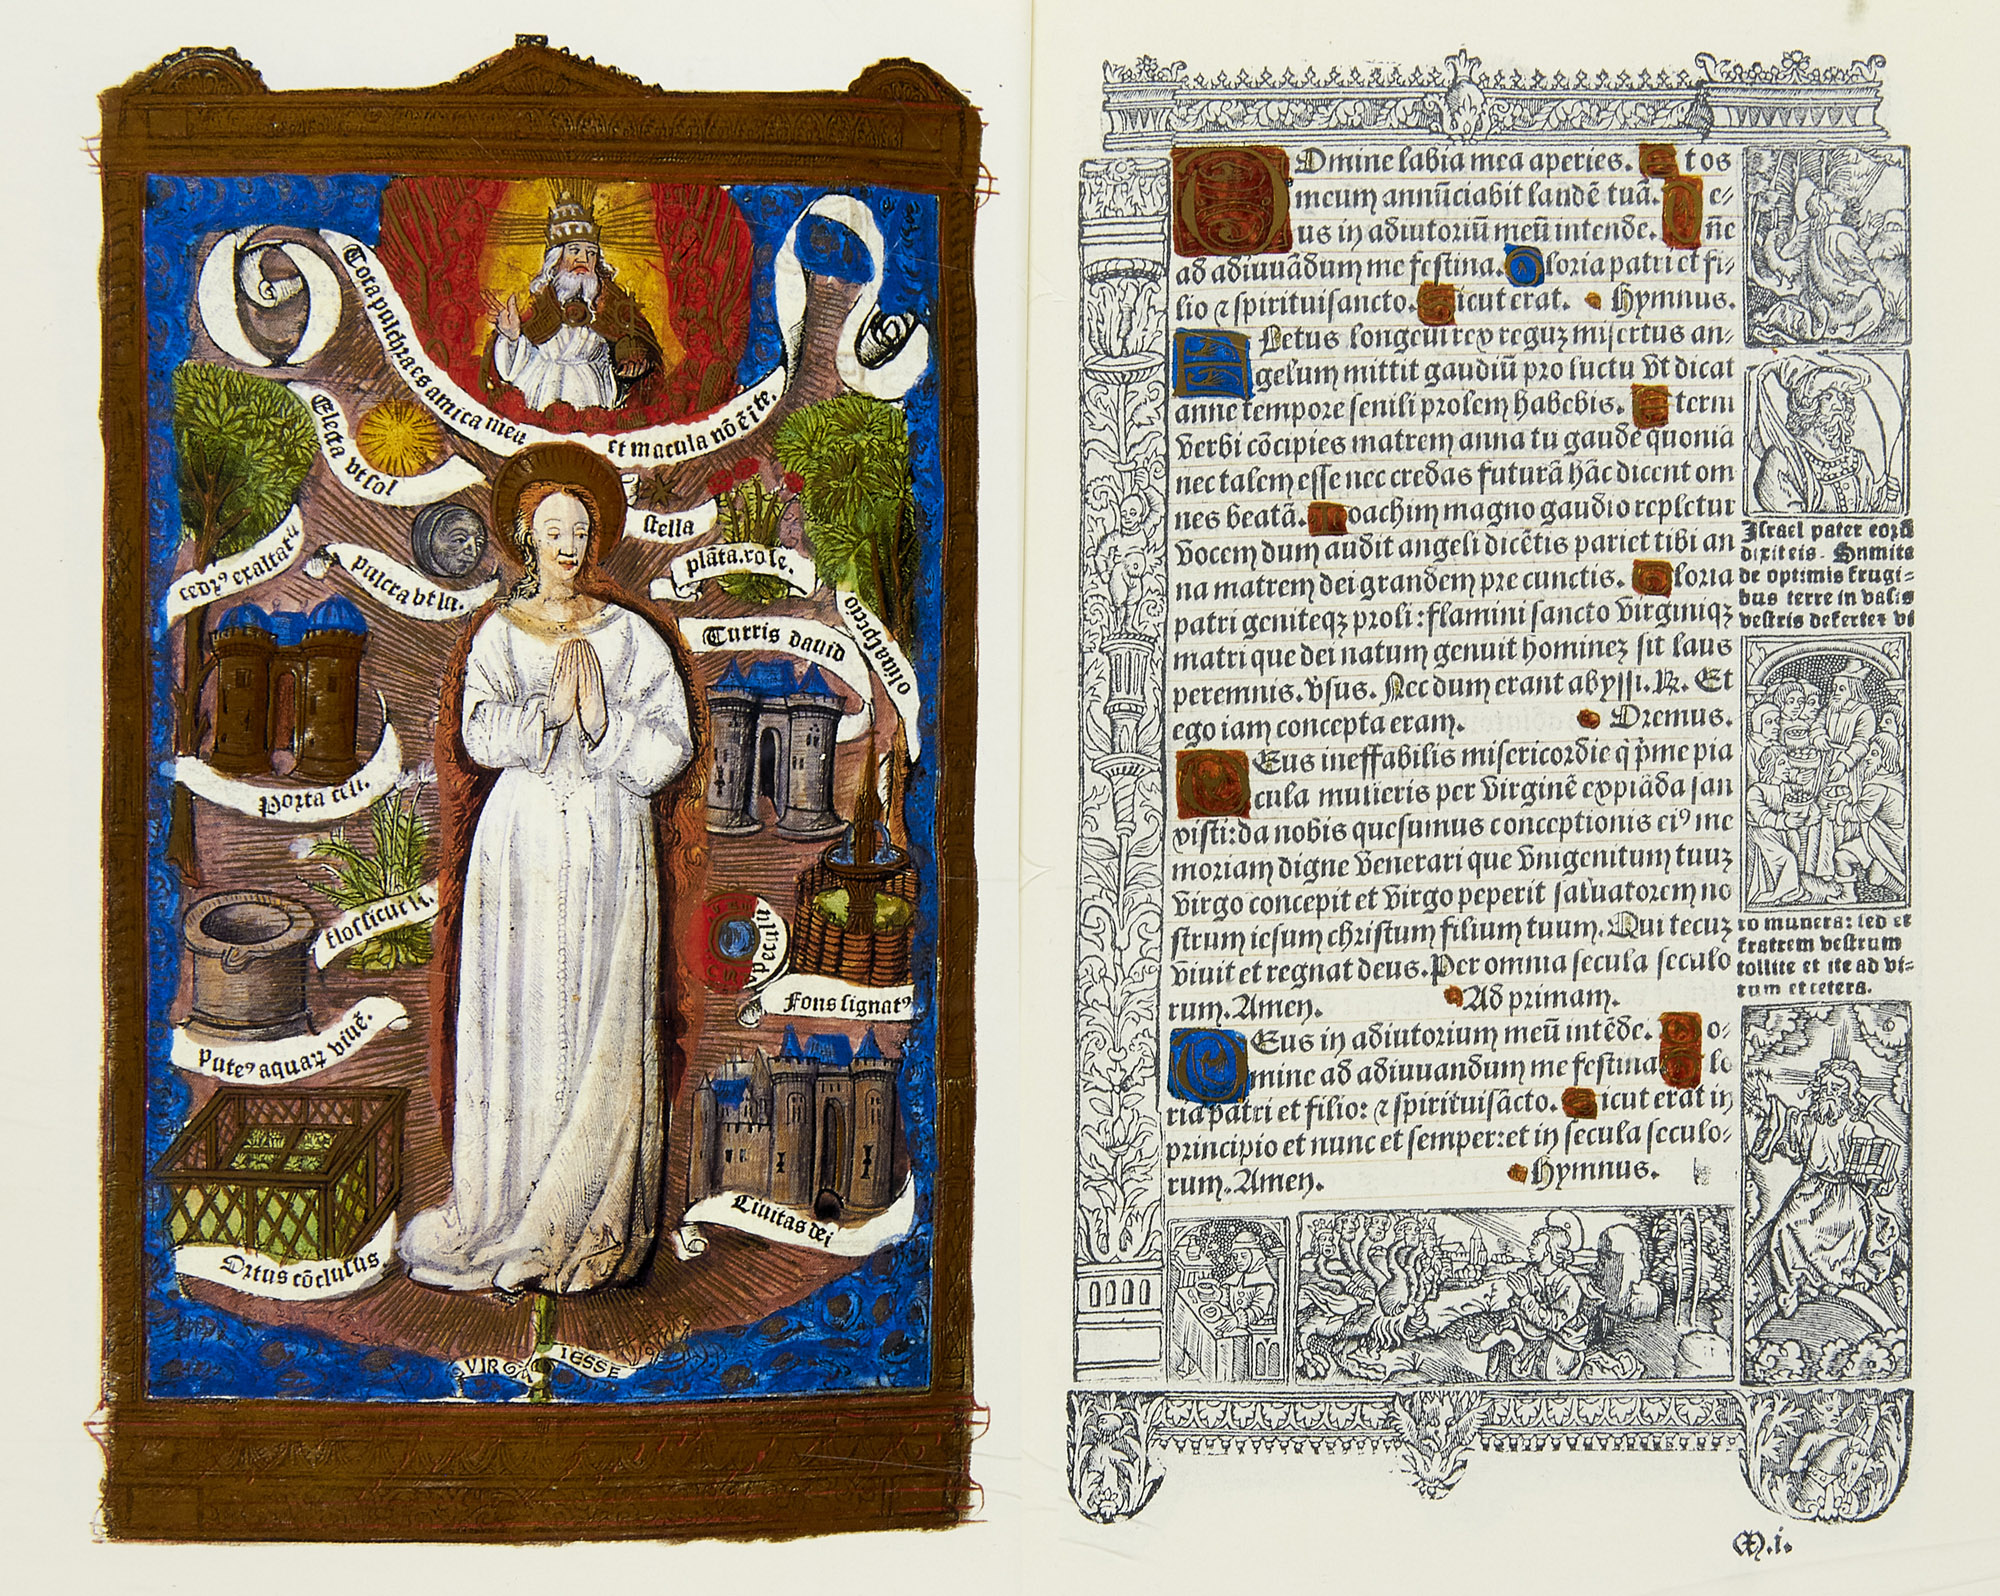 Tota pulchra es amica mea
et macula nō ē ī te.
Electa vt sol
stella
cedrꝰ exaltata
pulcra vt la.
plāta. rose.
Turris dauid
oliua
Porta celi.
flos sicut li.
Speculū
Fons signatꝰ
puteꝰ aquaꝝ viuē.
Ciuitas dei
Ortus cōclusus
VIRGA IESSE
Domine labia mea aperies. Et os
meum annūciabit laudē tuā. De-
us in adiutoriū meū intende. Dn̄e
ad adiuuādum me festina. Gloria patri et fi-
lio ⁊ spirituisancto. Sicut erat. Hymnus.
Fletus longeui rex reguꝫ misertus an-
gelum mittit gaudiū pro luctu vt dicat
anne tempore senili prolem habebis. Eterni
verbi cōcipies matrem anna tu gaude quoniā
nec talem esse nec credas futurā hāc dicent om
nes beatā. Ioachim magno gaudio repletur
vocem dum audit angeli dicētis pariet tibi an
na matrem dei grandem pre cunctis. Gloria
patri geniteqꝫ proli: flamini sancto virginiqꝫ
matri que dei natum genuit homineꝫ sit laus
peremnis. v̄sus. Nec dum erant abyssi. ℟. Et
ego iam concepta eram. Oremus.
Deus ineffabilis misericordie q̇ p̄me pia
cula mulieris per virginē expiāda san
xisti: da nobis quesumus conceptionis eiꝰ me
moriam digne venerari que vnigenitum tuuꝫ
virgo concepit et virgo peperit saluatorem no
strum iesum christum filium tuum. Qui tecuꝫ
viuit et regnat deus. Per omnia secula seculo
rum. Amen. Ad primam.
Deus in adiutorium meū intēde. Do-
mine ad adiuuandum me festina. Glo
ria patri et filio: ⁊ spirituisācto. Sicut erat in
principio et nunc et semper: et in secula seculo-
rum. Amen. Hymnus.
Israel pater eorū
dixit eis. Sumite
de optimis frugi-
bus terre in vasis
vestris deferte: vi
ro munera: sed et
fratrem vestrum
tollite et ite ad vi-
rum et cetera.
M.i.